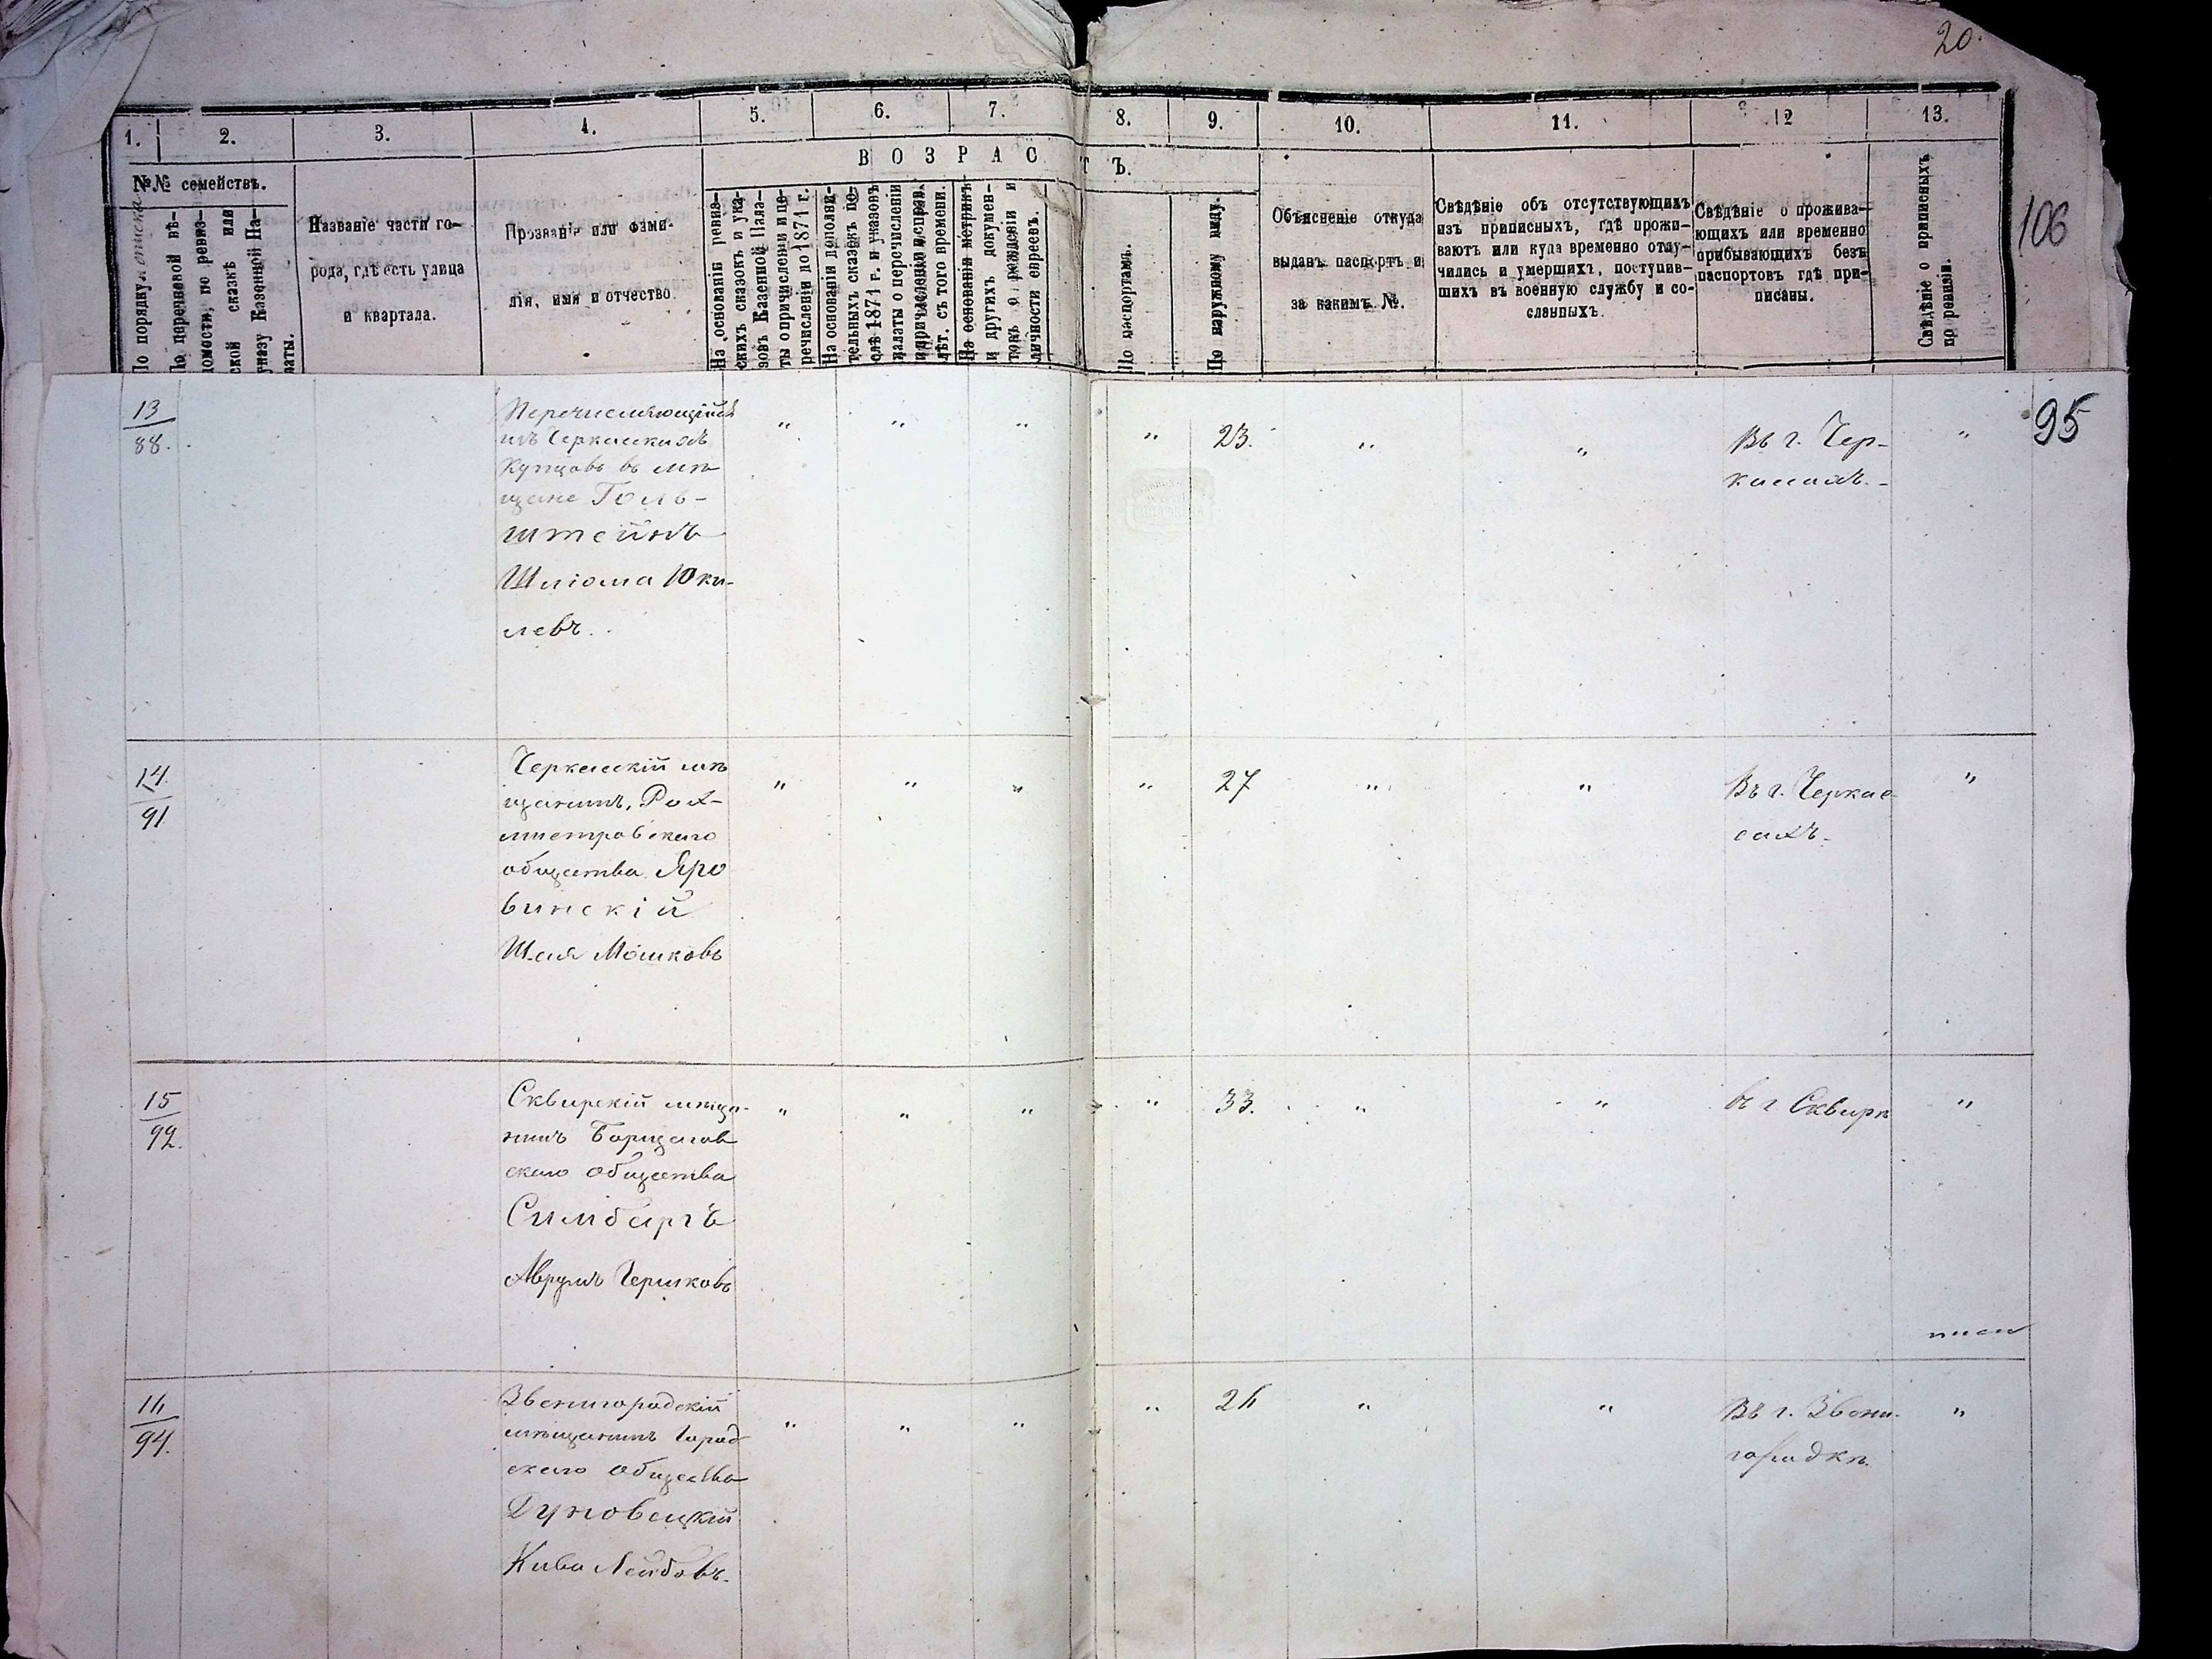 20.
1.
2.
3.
4.
5.
6.
7.
8.
9.
10.
11.
12
13.
ВОЗРАСТЪ.
№№ семействъ.
По порядку списка
По царевной вѣ-
домости, по ревиз-
ской сказкѣ или
указу Казенной Па-
латы.
Названіе части го-
рода, гдѣ есть улица
и квартала.
Прозваніе или фами-
лія, имя и отчество.
На основаніи ревиз-
скихъ сказокъ и ука-
зовъ Казенной Пала-
ты о причислени и пе-
речисленіи до 1871 г.
На основаніи дополни-
тельныхъ сказокъ по-
слѣ 1871 г. и указовъ
палаты о перечисленіи
и причисленіи исправ.
лѣт. съ того времени.
На основаніи метрикъ
и другихъ докумен-
товъ о рожденіи и
личности евреевъ.
По паспортамъ.
По наружному виду.
Объясненіе откуда
выданъ паспортъ и
за какимъ №.
Свѣдѣніе объ отсутствующихъ
изъ приписныхъ, гдѣ прожи-
ваютъ или куда временно отлу-
чились и умершихъ, поступив-
шихъ въ военную службу и со-
сланныхъ.
Свѣдѣніе о прожива-
ющихъ или временно
прибывающихъ безъ
паспортовъ гдѣ при-
писаны.
Свѣдѣніе о приписныхъ
по ревизіи.
106
95
13
88.
Перечисляющійся
изъ Черкасскихъ
Купцовъ въ мѣ
щане Голь-
штейнъ
Шлiома Юки-
левъ.
" " " " 23. " " Въ г. Чер-
кассахъ. - "
14
91
Черкасскій мѣ
щанинъ, Рот-
мистровскаго
общества Яро
винскій
Шая Мошковъ
" " " " 27 " " Въ г. Черкас-
сахъ. "
15
92.
Сквирскій мѣща-
нинъ Борщагов
скаго общества
Симбергъ
Аврумъ Гершковъ
" " " " 33. " " въ г Сквирѣ "
16
94.
Звенигородскій
мѣщанинъ Город
скаго общества
Дуновецкій
Кива Лейбовъ.
" " " " 26 " " Въ г. Звени-
городкѣ. "